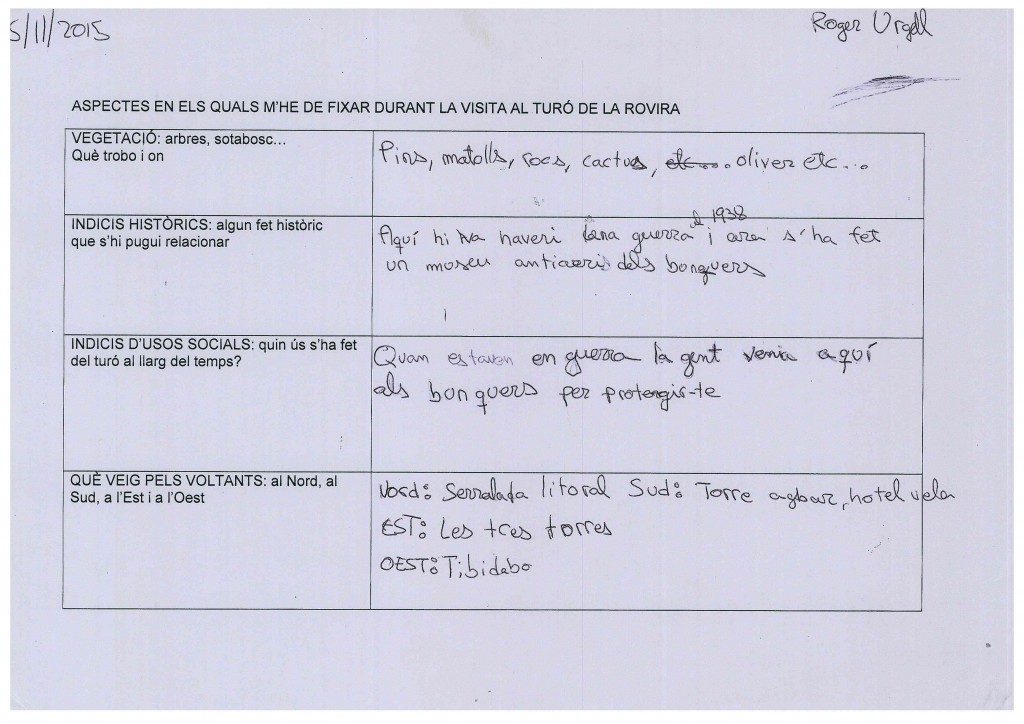 5/11/2015
Roger Urgell
ASPECTES EN ELS QUALS M'HE DE FIXAR DURANT LA VISITA AL TURÓ DE LA ROVIRA
VEGETACIÓ: arbres, sotabosc...
Què trobo i on
Pins, matolls, rocs, cactus, etc.... oliver etc...
INDICIS HISTÒRICS: algun fet històric
que s'hi pugui relacionar
el 1938
Aquí hi va haveri una guerra i ara s'ha fet
un museu antiaeris dels bonquers
INDICIS D'USOS SOCIALS: quin ús s'ha fet
del turó al llarg del temps?
Quan estaven en guerra la gent venia aquí
als bonquers per protergir-te
QUÈ VEIG PELS VOLTANTS: al Nord, al
Sud, a l'Est i a l'Oest
Nord: Serralada litoral Sud: Torre agbar, hotel vela
EST: Les tres torres
OEST: Tibidabo